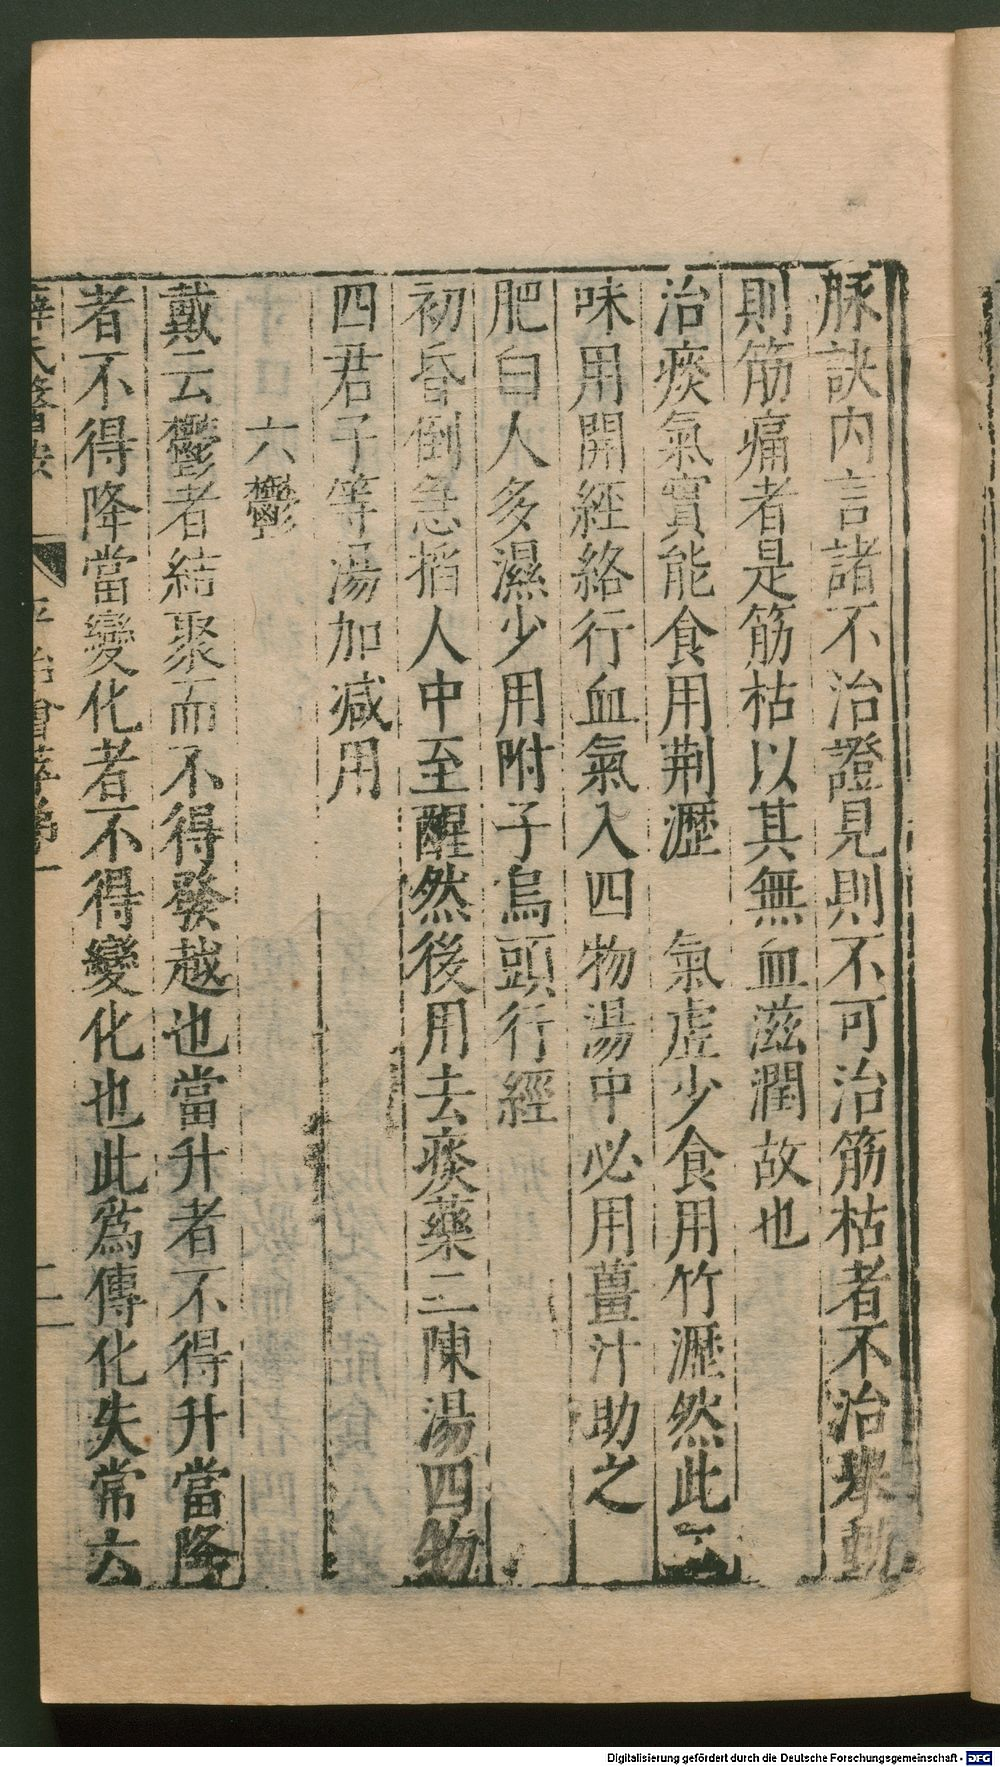 脉訣内言諸不治證見則不可治筋枯者不治舉動
則筋痛者是筋枯以其無血滋潤故也
治痰氣實能食用荆瀝　氣虛少食用竹瀝然此二
味用開經絡行血氣入四物湯中必用薑汁助之
肥白人多濕少用附子烏頭行經
初昏倒急掐人中至醒然後用去痰藥二陳湯四物
四君子等湯加减用
六鬱
戴云鬱者結聚而不得發越也當升者不得升當降
者不得降當變化者不得變化也此爲傳化失常六
薛氏醫按 平治會萃卷一 二
Digitalisierung gefördert durch die Deutsche Forschungsgemeinschaft - DFG